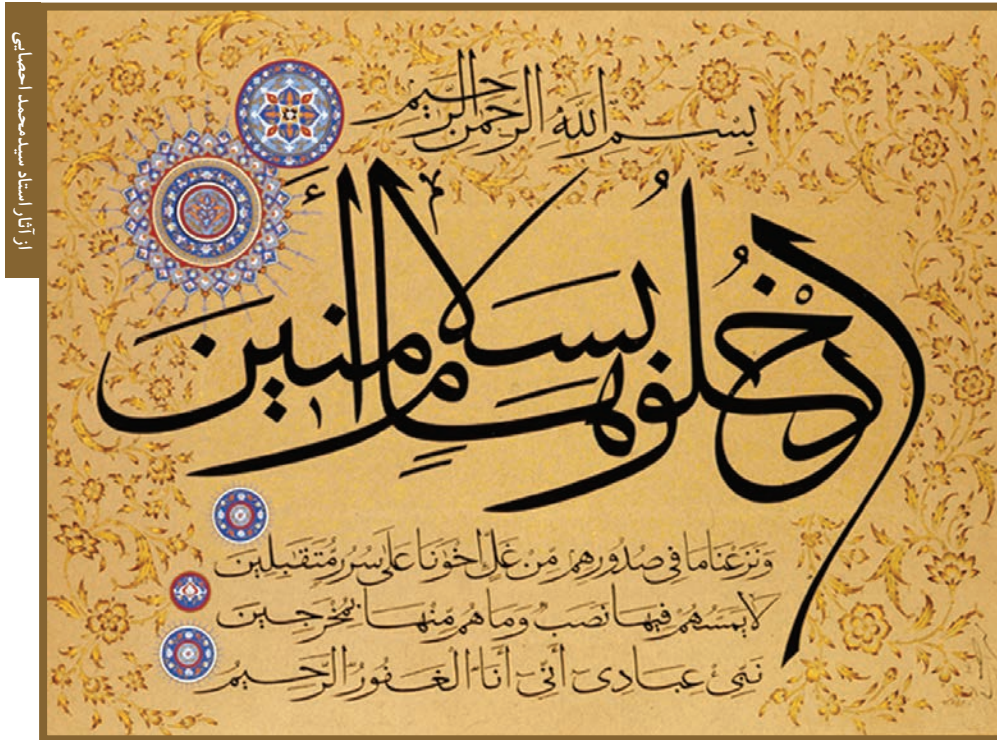 از آثار استاد سیدمحمد احصایی
بِسْمِ اللّٰهِ الرَّحْمٰنِ الرَّحِيمِ
ادْخُلُوهَا بِسَلَامٍ آمِنِينَ
وَنَزَعْنَا مَا فِي صُدُورِهِم مِّنْ غِلٍّ إِخْوَٰنًا عَلَىٰ سُرُرٍ مُّتَقَٰبِلِينَ
لَا يَمَسُّهُمْ فِيهَا نَصَبٌ وَمَا هُم مِّنْهَا بِمُخْرَجِينَ
نَبِّئْ عِبَادِي أَنِّي أَنَا الْغَفُورُ الرَّحِيمُ